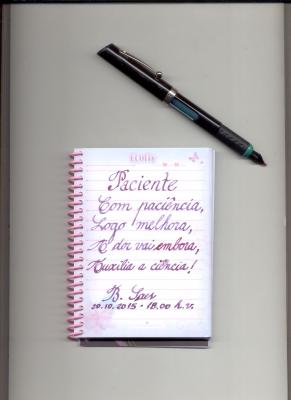 Paciente
Com paciência,
Logo melhora,
A dor vai embora,
Auxilia a ciência!
29.10.2015 - 18,00 h.v.